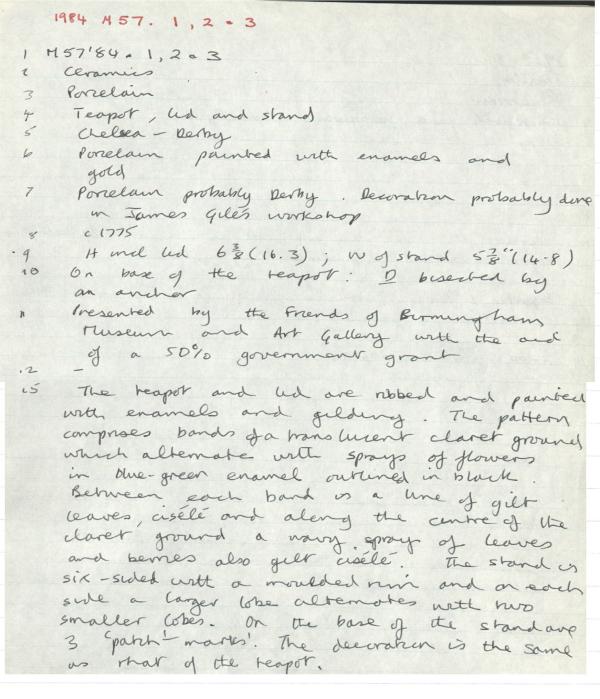 1984 M57. 1, 2 + 3
1 M57'84. 1, 2 + 3
2 Ceramics
3 Porcelain
4 Teapot, lid and stand
5 Chelsea - Derby
6 Porcelain painted with enamels and
gold
7 Porcelain probably Derby. Decoration probably done
in James Giles workshop
8 c 1775
9 H incl lid 6 3/8 (16.3); W of stand 5 7/8" (14.8)
10 On base of the teapot: D bisected by
an anchor
11 Presented by the Friends of Birmingham
Museum and Art Gallery with the aid
of a 50% government grant
12 -
15 The teapot and lid are ribbed and painted
with enamels and gilding. The pattern
comprises bands of a translucent claret ground
which alternate with sprays of flowers
in blue-green enamel outlined in black.
Between each band is a line of gilt
leaves, ciselé and along the centre of the
claret ground a wavy spray of leaves
and berries also gilt ciselé. The stand is
six-sided with a moulded rim and on each
side a larger lobe alternates with two
smaller lobes. On the base of the stand are
3 'patch'-marks'. The decoration is the same
as that of the teapot.